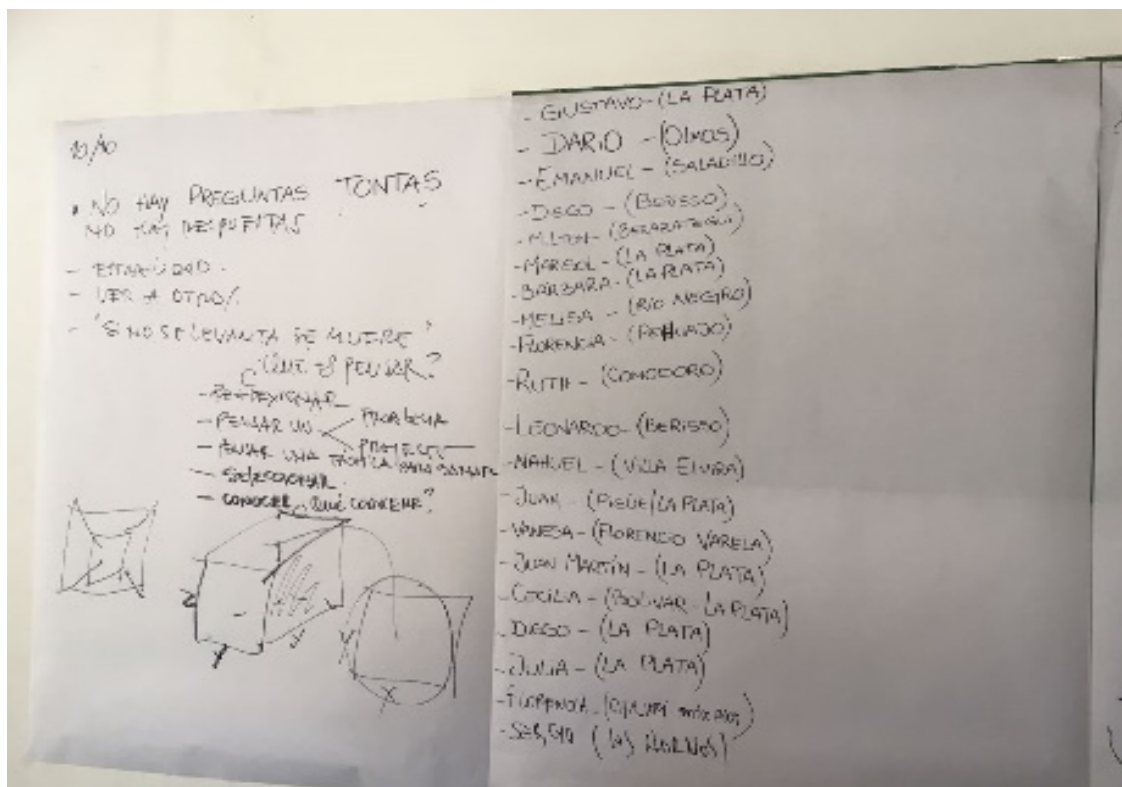 10/10
• NO HAY PREGUNTAS TONTAS
NO HAY RESPUESTAS
-
- VER A OTRO/
- "SI NO SE LEVANTA SE MUERE"
¿QUE ES PENSAR?
- REFLEXIONAR
- PENSAR UN
PROBLEMA
PROYECTO
- PENSAR UNA TÁCTICA PARA GANAR
- SELECCIONAR
- CONOCER ¿QUÉ CONOCER?
Z
Y
Y
X
- GUSTAVO - (LA PLATA)
- DARIO - (Olmos)
- EMANUEL - (SALADILLO)
- DIEGO - (BERISSO)
- MILTON - (BERAZATEGUI)
- MARISOL - (LA PLATA)
- BARBARA - (LA PLATA)
- MELISA - (RIO NEGRO)
- FLORENCIA - (PEHUAJO)
- RUTH - (COMODORO)
- LEONARDO - (BERISSO)
- NAHUEL - (VILLA ELVIRA)
- JUAN - (PIGÜE/LA PLATA)
- VANESA - (FLORENCIO VARELA)
- JUAN MARTÍN - (LA PLATA)
- CECILIA - (BOLIVAR - LA PLATA)
- DIEGO - (LA PLATA)
- JULIA - (LA PLATA)
- FLORENCIA -
- SERGIO